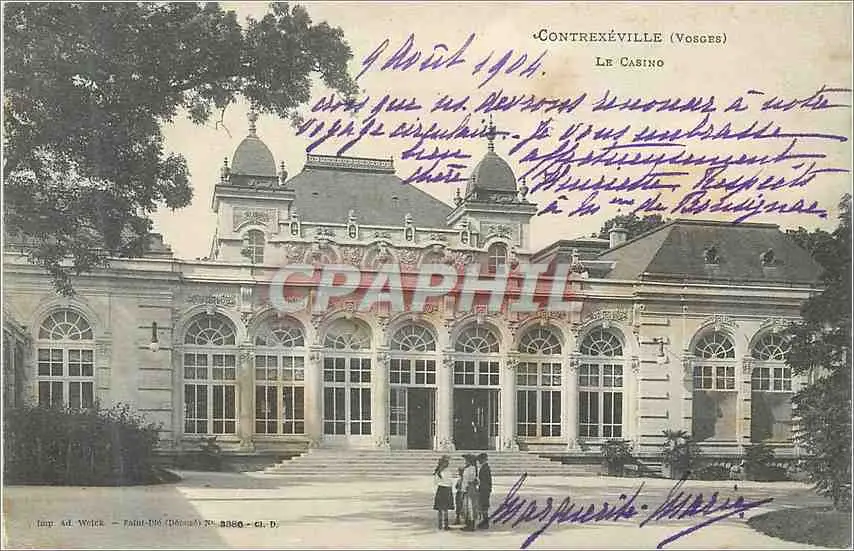 CONTREXÉVILLE (VOSGES)
LE CASINO
9 Août 1904.
crois que ns. devrons renoncer à notre
voyage circulaire. Je vous embrasse
bien affectueusement
chère Henriette. Respects
à Mme de
CPARHAMA
Marguerite-Marie
Imp. Ad. Weick. — Saint-Dié (Déposé) No 3386 - Cl. D.